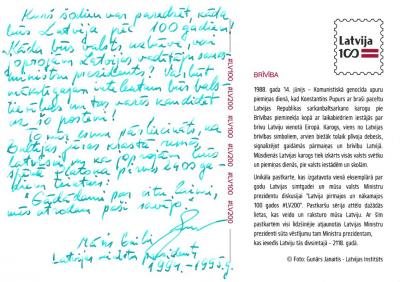 Kurš šodien var paredzēt, kāda
būs Latvija pēc 100 gadiem?
Kāda būs valsts uzbūve, vai
joprojām Latvijas vadītājs sauks
ministru prezidents? Varbūt
mākslīgajam intelektam būs balss
tiesības un tas varēs kandidēt
uz šo posteni?
To mēs, esmu pārliecināts, ka
Baltijas jūras krastā runās
latviski un ka joprojām būs
spēkā Platona pirms 2400 ga-
diem teiktais:
"Gādādami par citu laimi,
mēs atrodam paši savējo"
Māris Gailis
Latvijas ministru prezidents
1994.-1995.g.
#LV100 #LV200 #LV100 #LV200 #LV100 #LV200
Latvija
100
BRĪVĪBA
1988. gada 14. jūnijs – Komunistiskā genocīda upuru
piemiņas dienā, kad Konstantīns Pupurs ar brašu pacelto
Latvijas Republikas sarkanbaltsarkano karogu pie
Brīvības pieminekļa kopā ar laikabiedriem iestājās par
brīvu Latviju vienotā Eiropā. Karogs, viens no Latvijas
brīvības simboliem, arvien biežāk tolaik plīvoja debesīs,
signalizējot gaidāmās pārmaiņas un brīvību Latvijā.
Mūsdienās Latvijas karogs tiek izkārts visās valsts svētku
un piemiņas dienās, pie valsts iestādēm un skolām.
Unikāla pastkarte, kas izgatavota vienā eksemplārā par
godu Latvijas simtgadei un mūsu valsts Ministru
prezidentu diskusijai "Latvija pirmajos un nākamajos
100 gados #LV200". Pastkaršu sērija attēlo dažādās
lietas, kas veido un raksturo mūsu Latviju. Ar šīm
pastkartēm visi līdzšinējie atjaunotās Latvijas Ministru
prezidenti sūta vēstījumu tam Ministru prezidentam,
kas ievedīs Latviju tās divsimtajā – 2118. gadā.
© Foto: Gunārs Janaitis - Latvijas Institūts